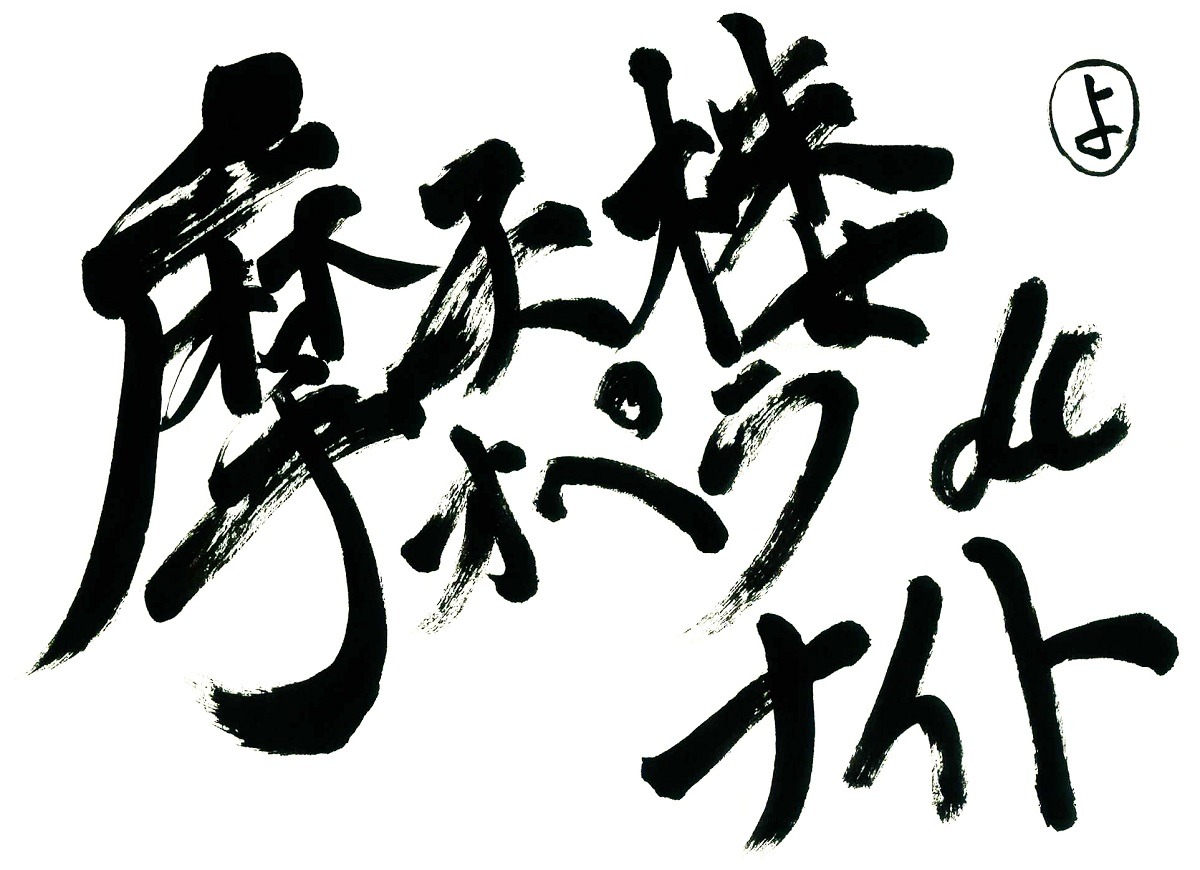 よ
摩天楼
オペラ
de
ナイト